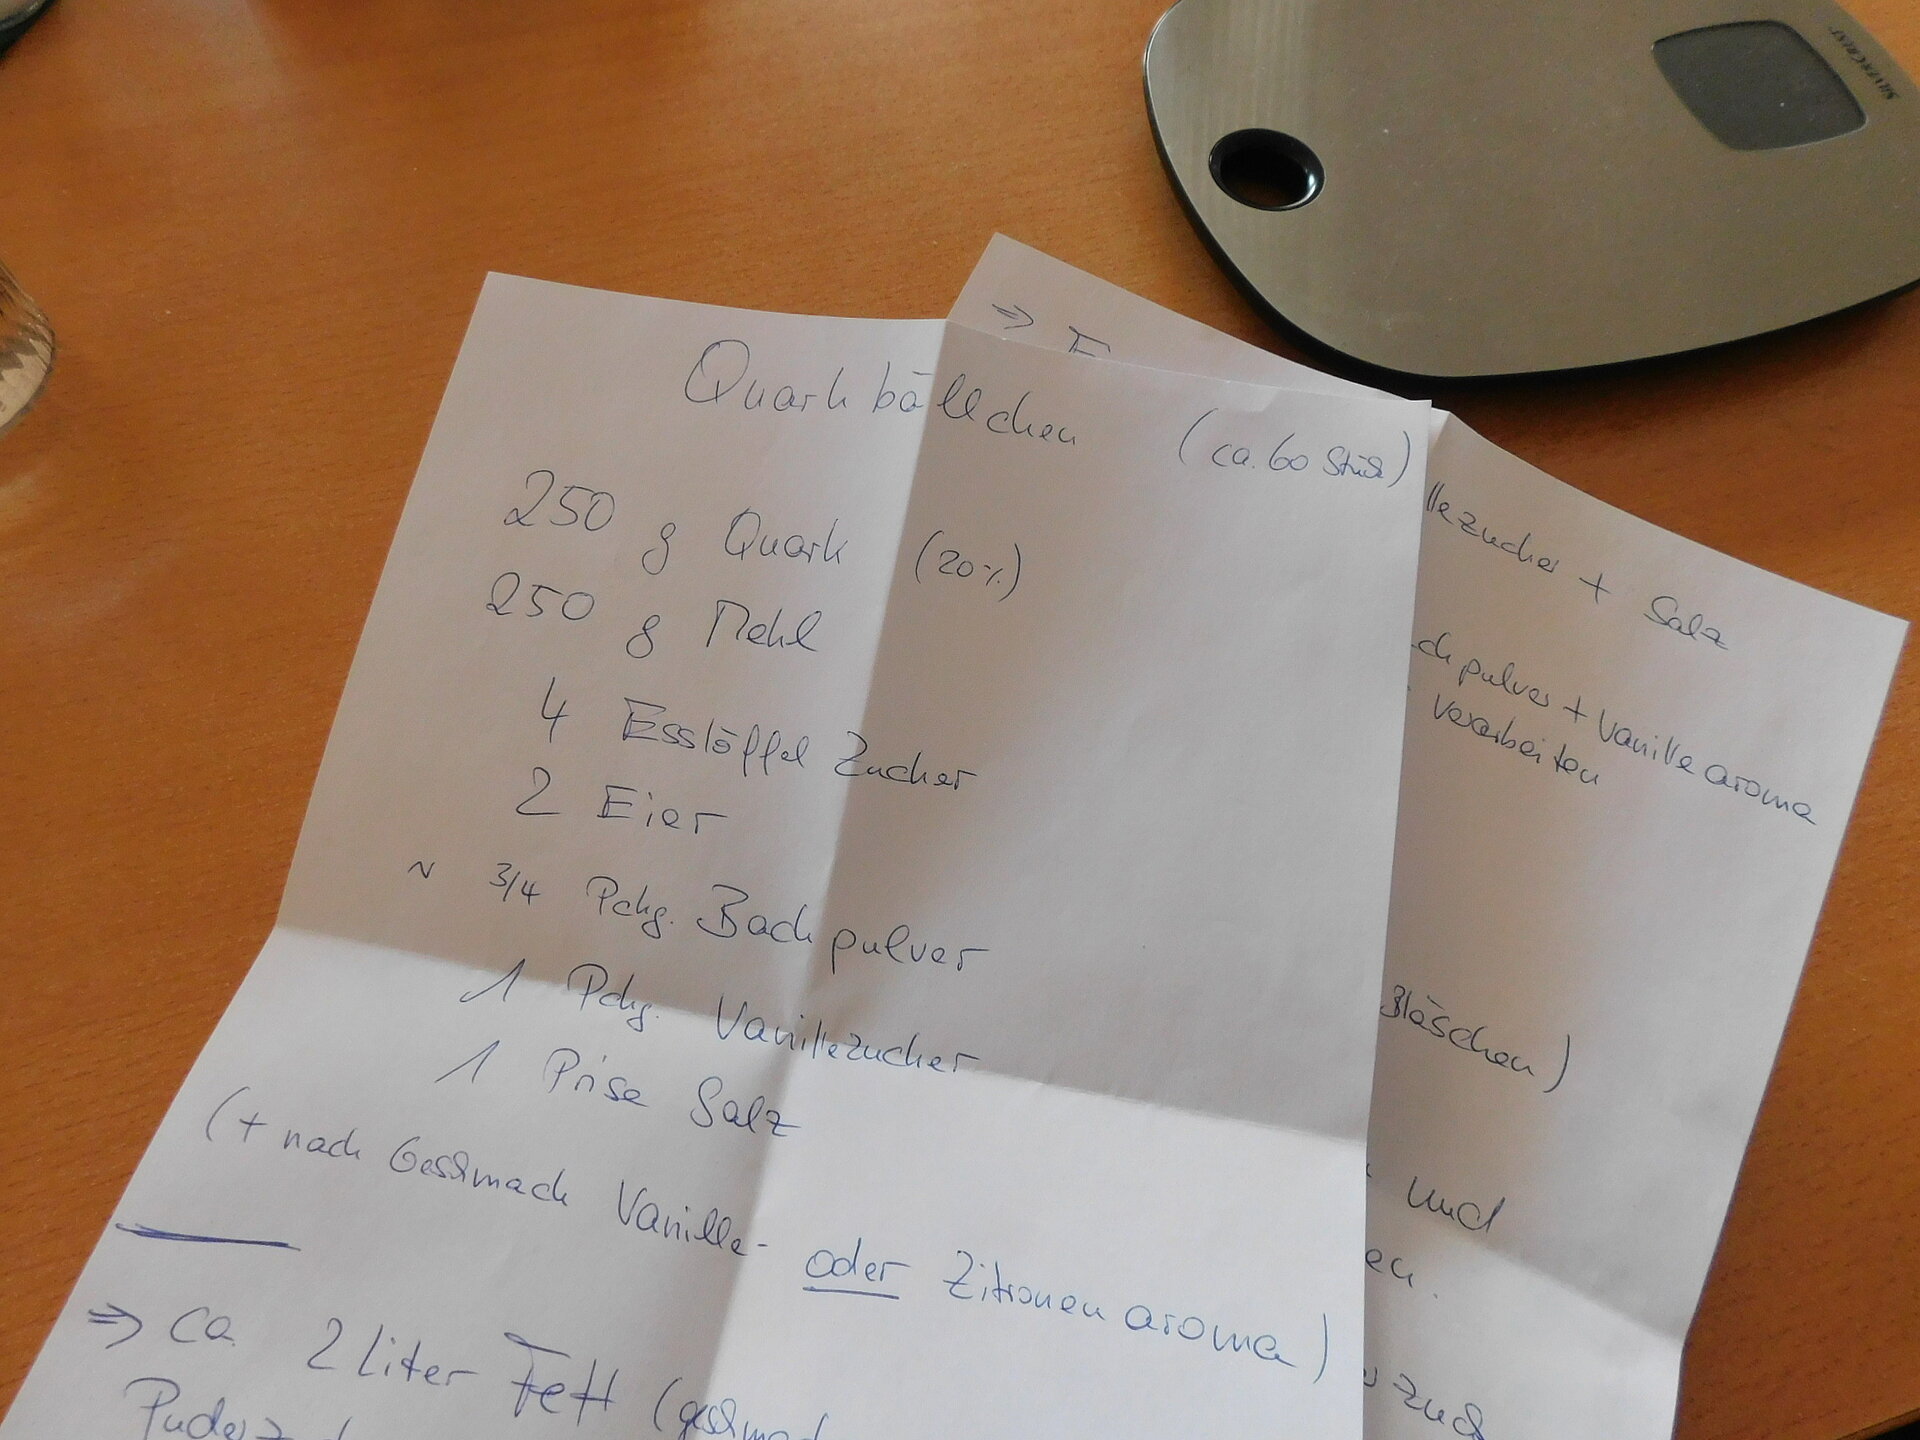 Quarkbällchen (ca. 60 Stück)
250 g Quark (20%)
250 g Mehl
4 Esslöffel Zucker
2 Eier
~ 3/4 Pckg. Backpulver
1 Pckg. Vanillezucker
1 Prise Salz
(+ nach Geschmack Vanille- oder Zitronenaroma)
⇒ ca. 2 Liter Fett (geschmack
Puderz
⇒ E
llezucker + Salz
ckpulver + Vanillearoma
verarbeiten
Bläschen)
und
en.
zuck
SILVERCREST